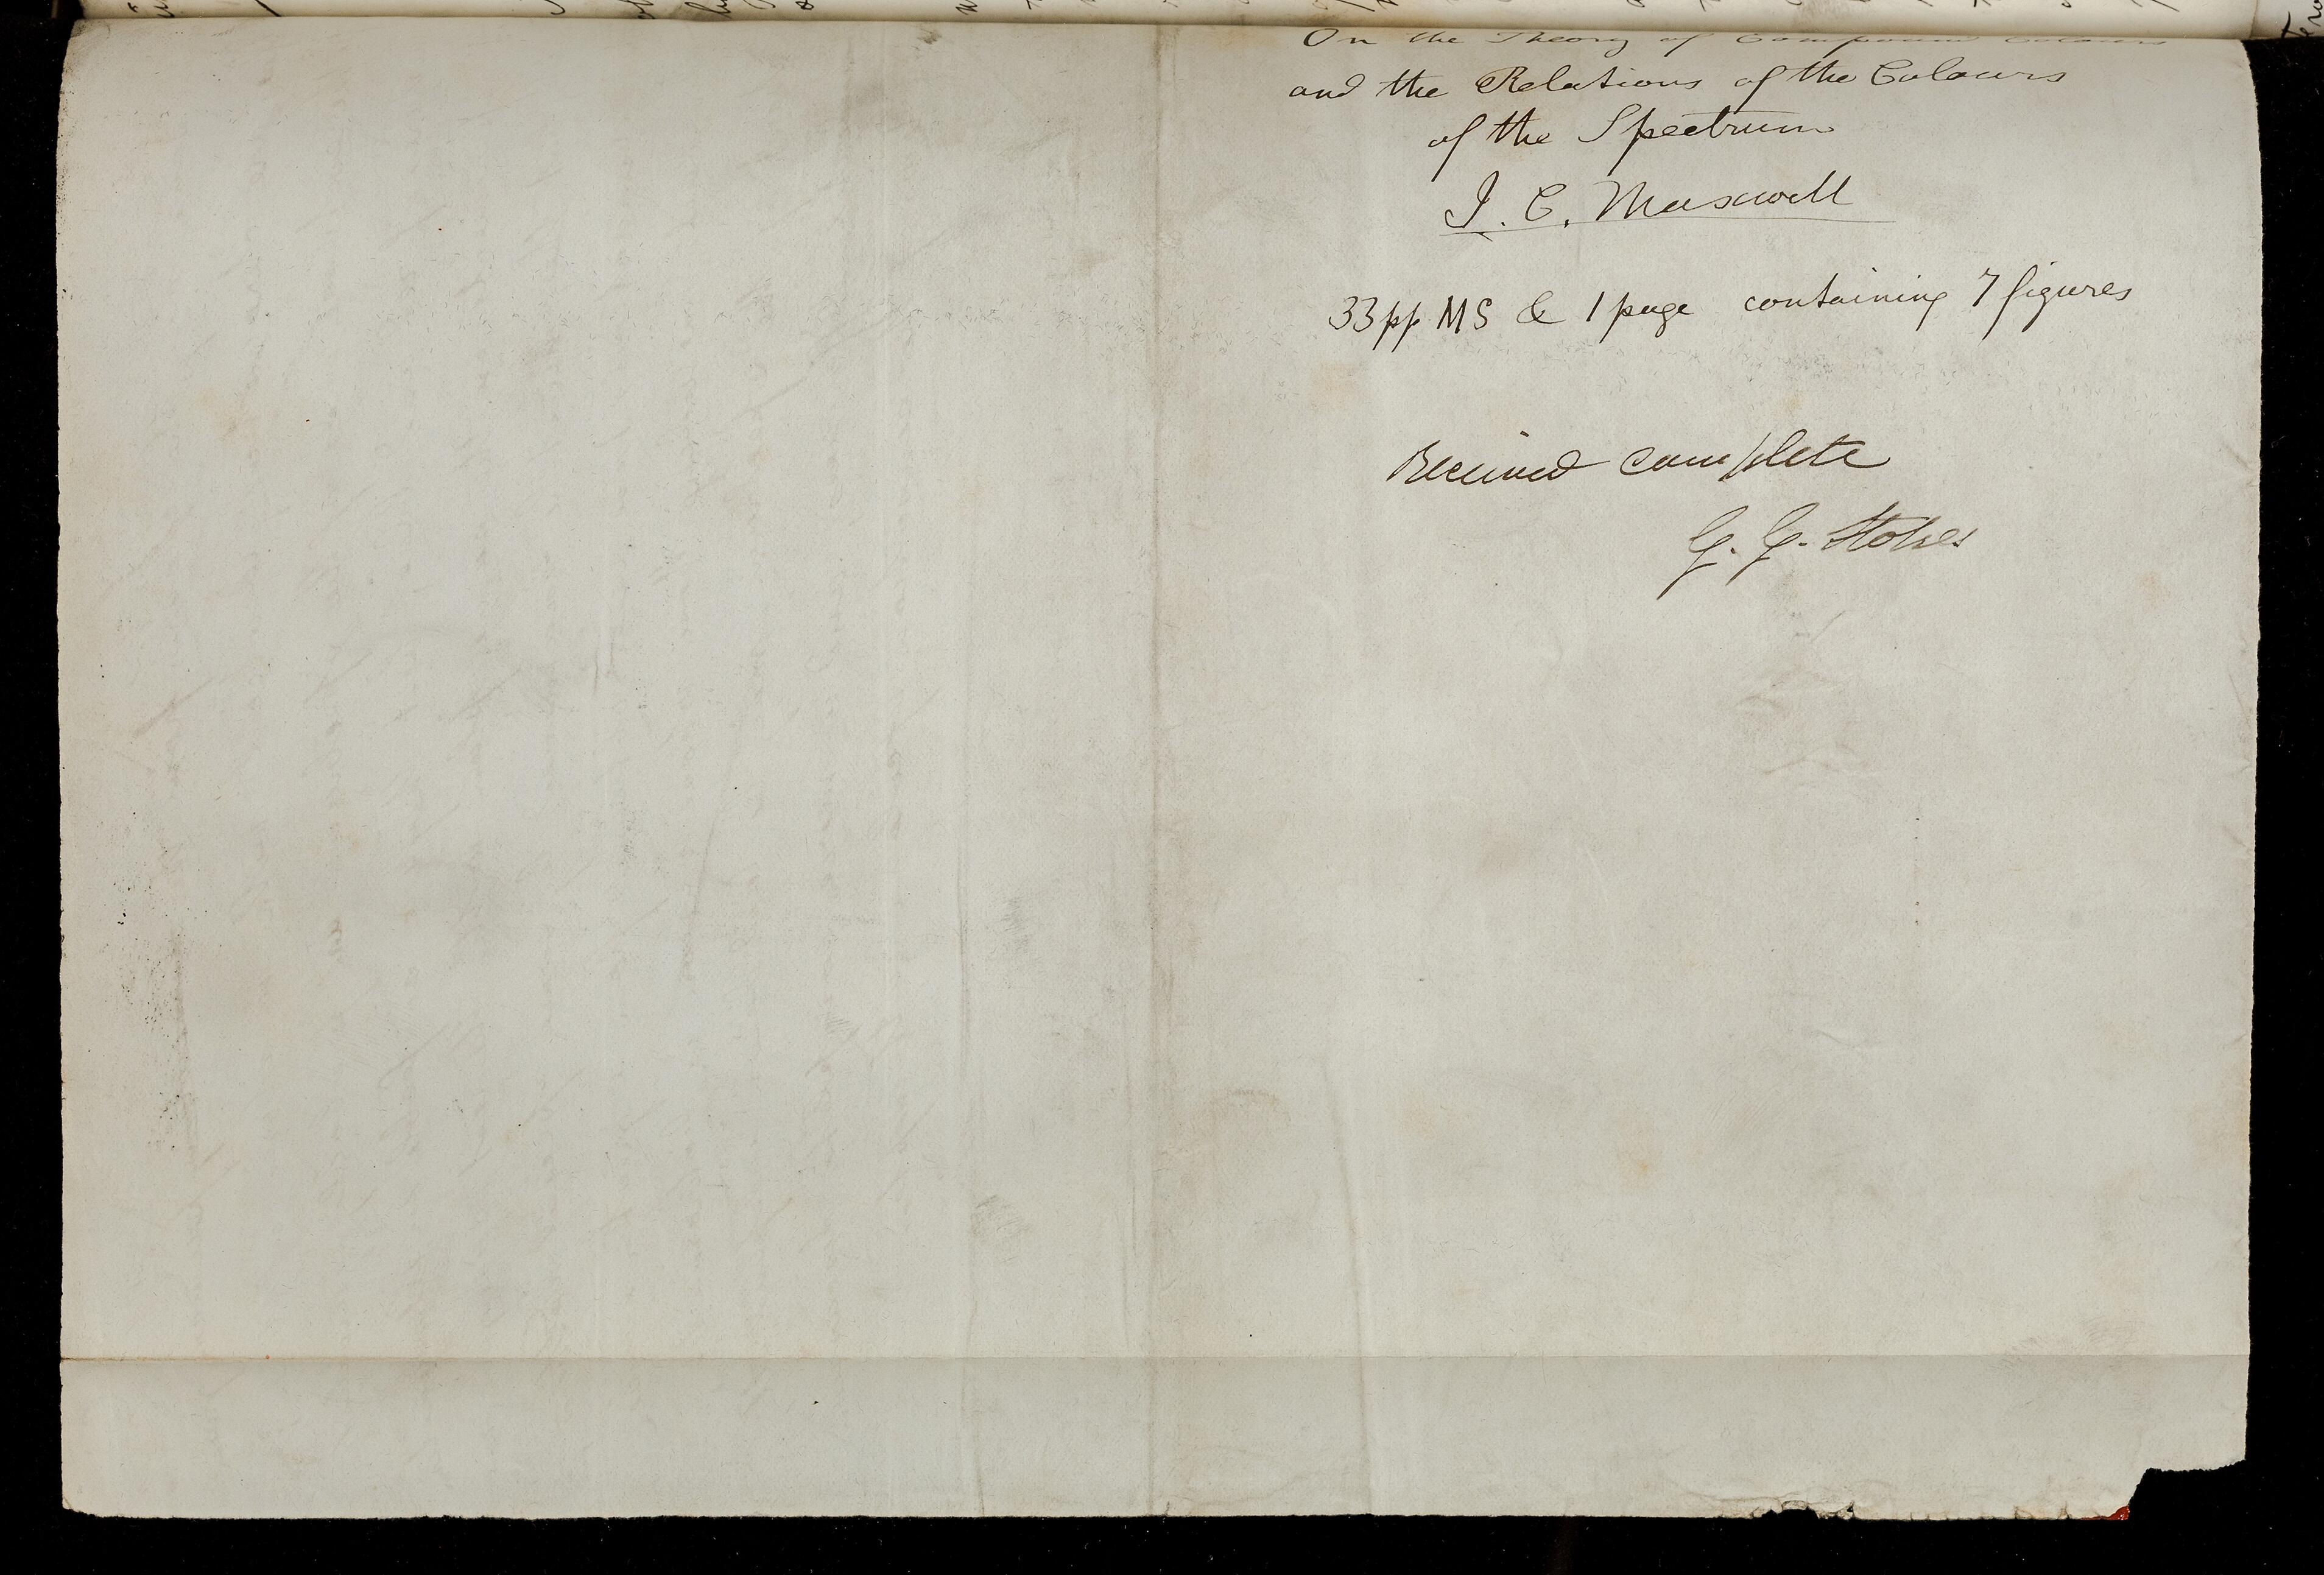 On the Theory of Compound Colours
and the Relations of the Colours
of the Spectrum
J. C. Maxwell
33pp MS & 1 page containing 7 figures
Received complete
G. G. Stokes